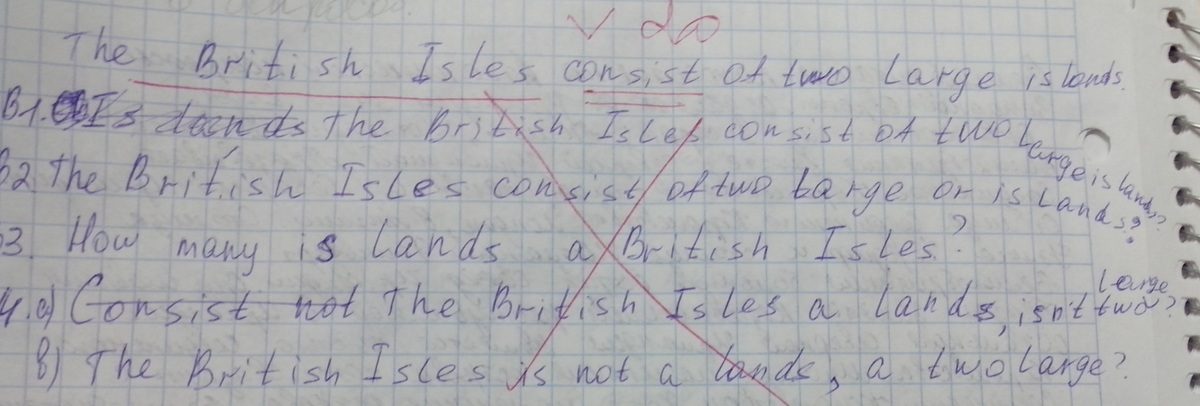 The British Isles consist of two large islands.
B1. Is the British Isles consist of two Large islands?
B2 The British Isles consist of two Large or islands?
B3. How many islands a British Isles?
4. a) Consist not The British Isles a lands, isn't two Large?
b) The British Isles is not a lands, a two large?